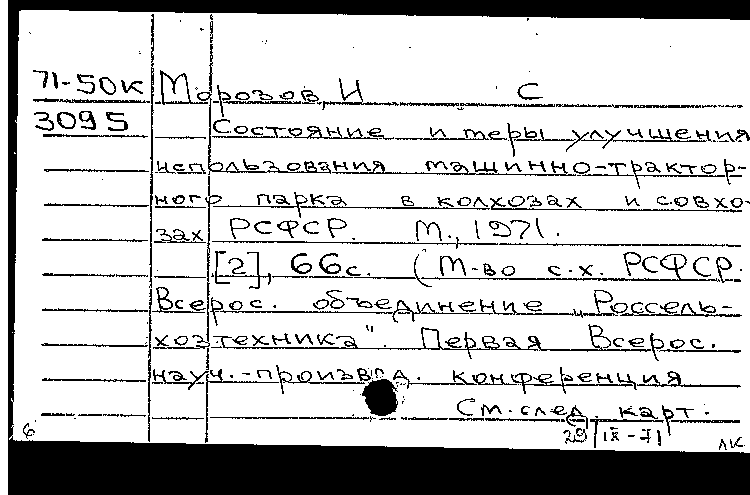 71-50к Морозов, И С
3095 Состояние и меры улучшения
использования машинно-трактор-
ного парка в колхозах и совхо-
зах РСФСР. М., 1971.
[2], 66с. (М-во с.х. РСФСР.
Всерос. объединение „Россель-
хозтехника". Первая Всерос.
науч.-произвд. конференция
См. след. карт.
6 29/IX-71 ЛК